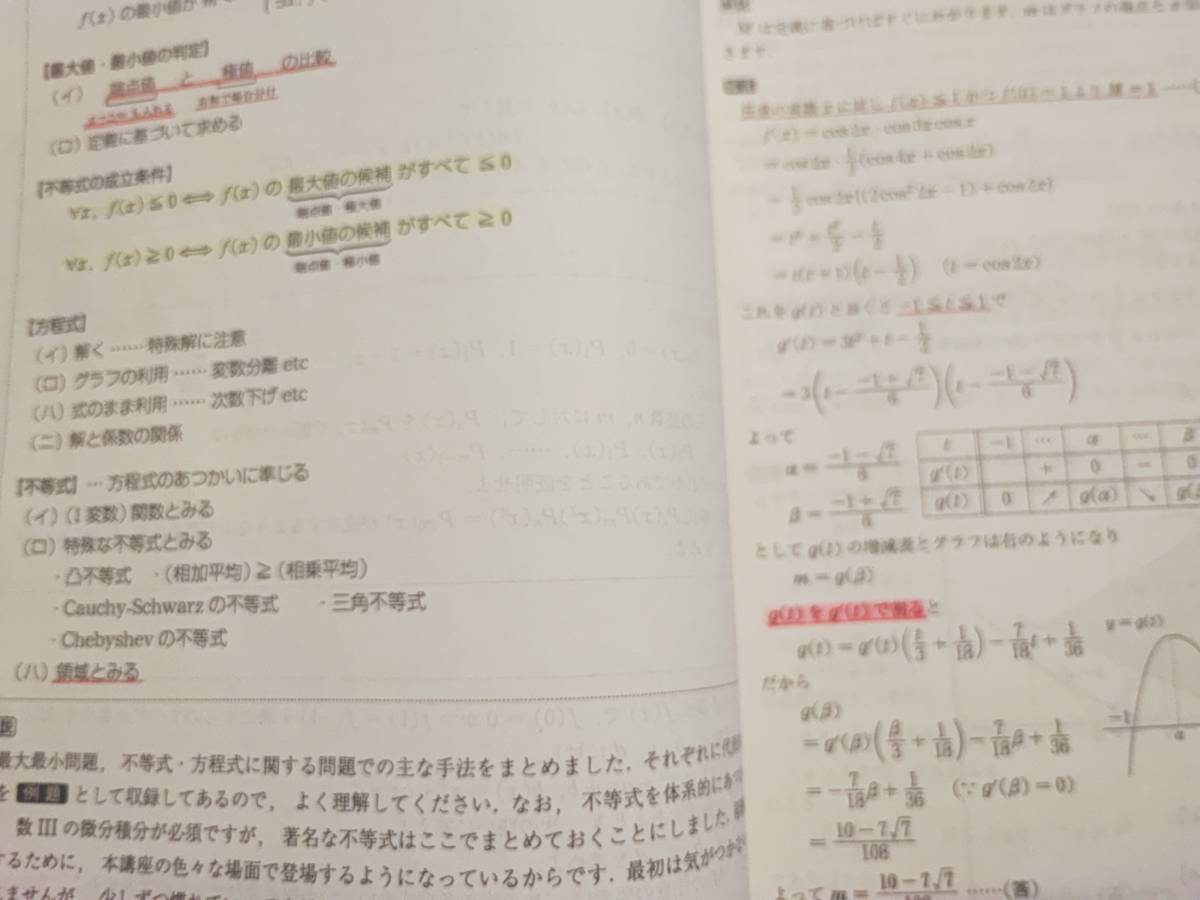 f(x) の最小値が
【最大値・最小値の判定】
(イ) 端点値 と 極値 の比較
(ロ) 定義に基づいて求める
【不等式の成立条件】
∀x, f(x) ≦ 0 ⟺ f(x) の 最大値の候補 がすべて ≦ 0
端点値・極大値
∀x, f(x) ≧ 0 ⟺ f(x) の 最小値の候補 がすべて ≧ 0
端点値・極小値
【方程式】
(イ) 解く …… 特殊解に注意
(ロ) グラフの利用 …… 変数分離 etc
(ハ) 式のまま利用 …… 次数下げ etc
(ニ) 解と係数の関係
【不等式】… 方程式のあつかいに準じる
(イ) (1変数) 関数とみる
(ロ) 特殊な不等式とみる
・凸不等式 ・(相加平均) ≧ (相乗平均)
・Cauchy-Schwarz の不等式 ・三角不等式
・Chebyshev の不等式
(ハ) 領域とみる
最大最小問題，不等式・方程式に関する問題での主な手法をまとめました．それぞれに代
を 例題 として収録してあるので，よく理解してください．なお，不等式を体系的にあつ
数 III の微分積分が必須ですが，著名な不等式はここでまとめておくことにしました．
するために，本講座の色々な場面で登場するようになっているからです．最初は気がつか
f(x) = cos 2x · cos 3x cos x
= cos 2x · 1/2 (cos 4x + cos 2x)
= 1/2 cos 2x{(2cos² 2x − 1) + cos 2x}
= t³ + t²/2 − t/2
= t(t + 1)(t − 1/2) (t = cos 2x)
これを g(t) とおくと −1 ≦ t ≦ 1 で
g′(t) = 3t² + t − 1/2
= 3(t − (−1 + √7)/6)(t − (−1 − √7)/6)
よって
α = (−1 − √7)/6
β = (−1 + √7)/6
t −1 … α … β
g′(t) + 0 −
g(t) 0 ↗ g(α) ↘
として g(t) の増減表とグラフは右のようになり
m = g(β)
g(t) を g′(t) で割ると
g(t) = g′(t)(t/3 + 1/18) − 7/18 t + 1/36
y = g(t)
−1 α
だから
g(β)
= g′(β)(β/3 + 1/18) − 7/18 β + 1/36
= −7/18 β + 1/36 (∵ g′(β) = 0)
= (10 − 7√7)/108
よって m = 10 − 7√7 ……(答)